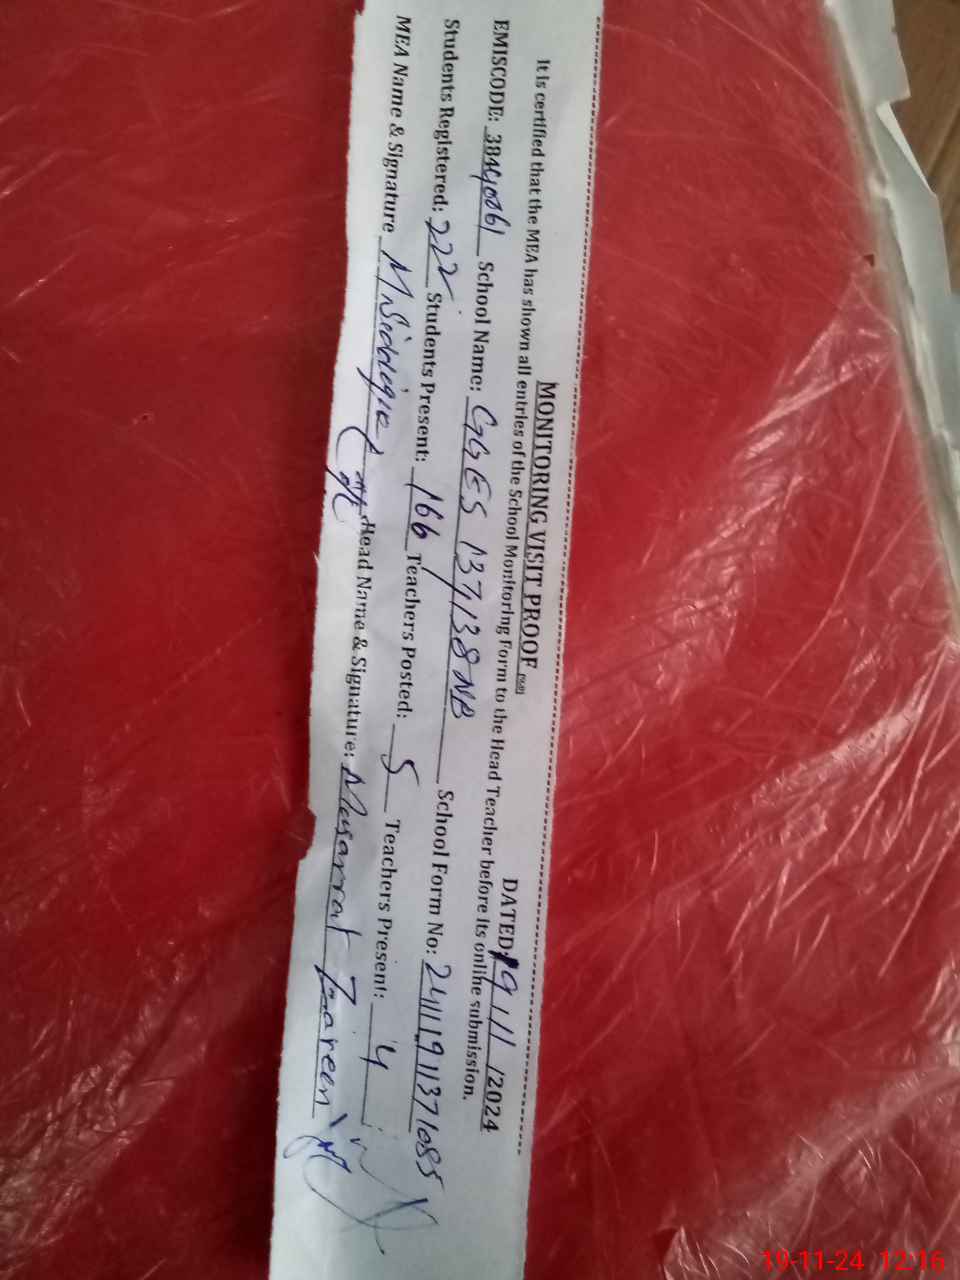 MONITORING VISIT PROOF (PMIU) DATED: 19/11/2024
It is certified that the MEA has shown all entries of the School Monitoring Form to the Head Teacher before its online submission.
EMISCODE: School Name: GGES 137/138 NB School Form No:
Students Registered: 222 Students Present: 166 Teachers Posted: 5 Teachers Present: 4
MEA Name & Signature M Siddique Head Name & Signature: Musarrat Zareen
19-11-24 12:16